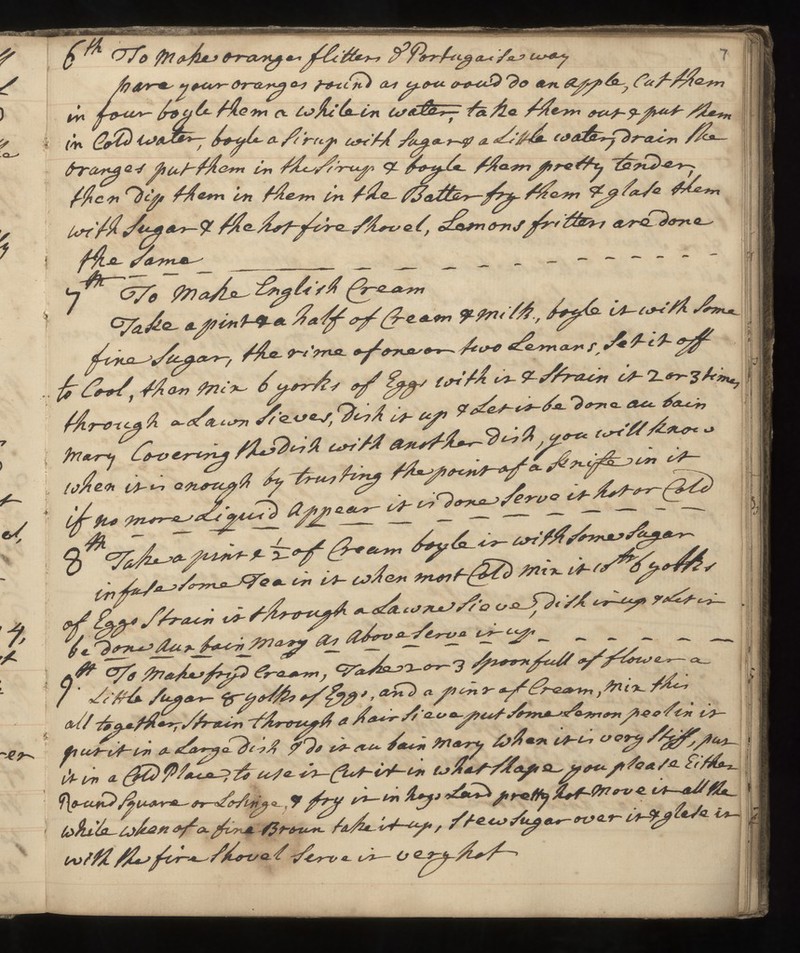 7
6th To Make oranges flitters & Portugaise way
pare your oranges round as you woud do an apple, Cut them
in four boyle them a while in water, take them out & put them
in Cold water, boyle a Sirup with Sugar & a Little water, drain the
oranges put them in the Sirup & boyle them pretty tender,
then dip them in them in the Batter fry them & glase them
with Sugar & the hot fire Shovel, Lemons fritters are done
the Same
7th To Make English Cream
Take a pint & a half of Cream & milk, boyle it with Some
fine Sugar, the rime of one or two Lemans, Set it off
to Cool, than mix 6 yorks of Eggs with it & Strain it 2 or 3 times
through a Lawn Sieves, Dish it up & Let it be done au bain
mary Covering the Dish with another Dish, you will know
when it is enough by trusting the point of a Knife in it
if no more Liquid Appear it is done Serve it hot or Cold
8th Take a pint & 1/2 of Cream boyle it with Some Sugar
infuse Some Tea in it when most Cold mix it wth 6 yolks
of Eggs Strain it through a Lawne Sieve, Dish it up & Let it
be done aux bain Mary As Above Serve it up
9th To Make fryd Cream, Take 2 or 3 Spoonfull of flower a
Little Sugar 8 yolks of Eggs, and a pint of Cream, mix this
all together, Strain through a hair Sieve put Some Lemon peel in it
put it in a Large Dish & do it au bain mary when it is very Stiff, put
it in a Cold Place, to use it Cut it in what Shape you please Either
Round Square or Losinge, & fry it in hogs Lard pretty hot move it all the
while when of a fine Broun take it up, Strew Sugar over it & glase it
with the fire Shovel Serve it very hot